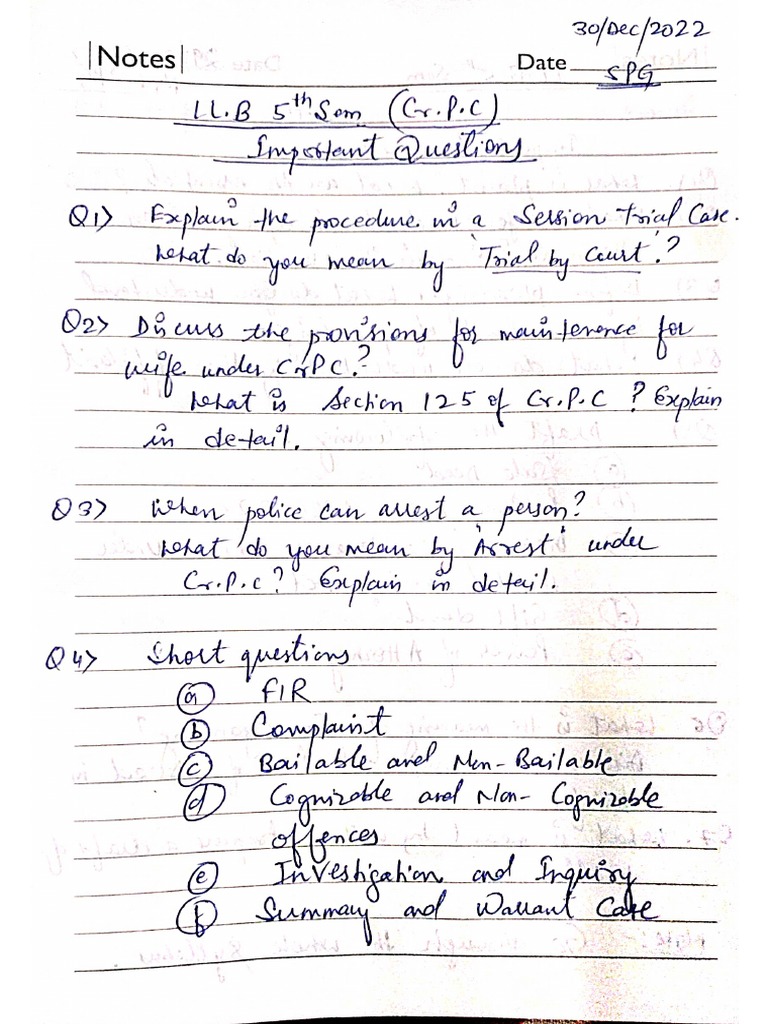 30/Dec/2022
Notes Date
SPG
LL.B 5th Sem (Cr.P.C)
Important Questions
Q1> Explain the procedure in a Session Trial Case.
What do you mean by 'Trial by Court'?
Q2> Discuss the provisions for maintenence for
wife under CrPC?
What is Section 125 of Cr.P.C ? Explain
in detail.
Q3> When police can arrest a person?
What do you mean by 'Arrest' under
Cr.P.C? Explain in detail.
Q4> Short questions
(a) FIR
(b) Complaint
(c) Bailable and Non-Bailable
(d) Cognizable and Non-Cognizable
offences
(e) Investigation and Inquiry
(f) Summary and Warrant Case